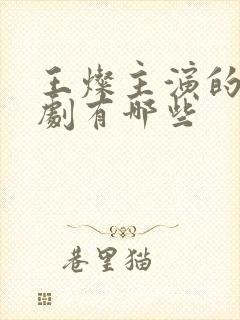 王燦主演的
劇有哪些
巷里猫